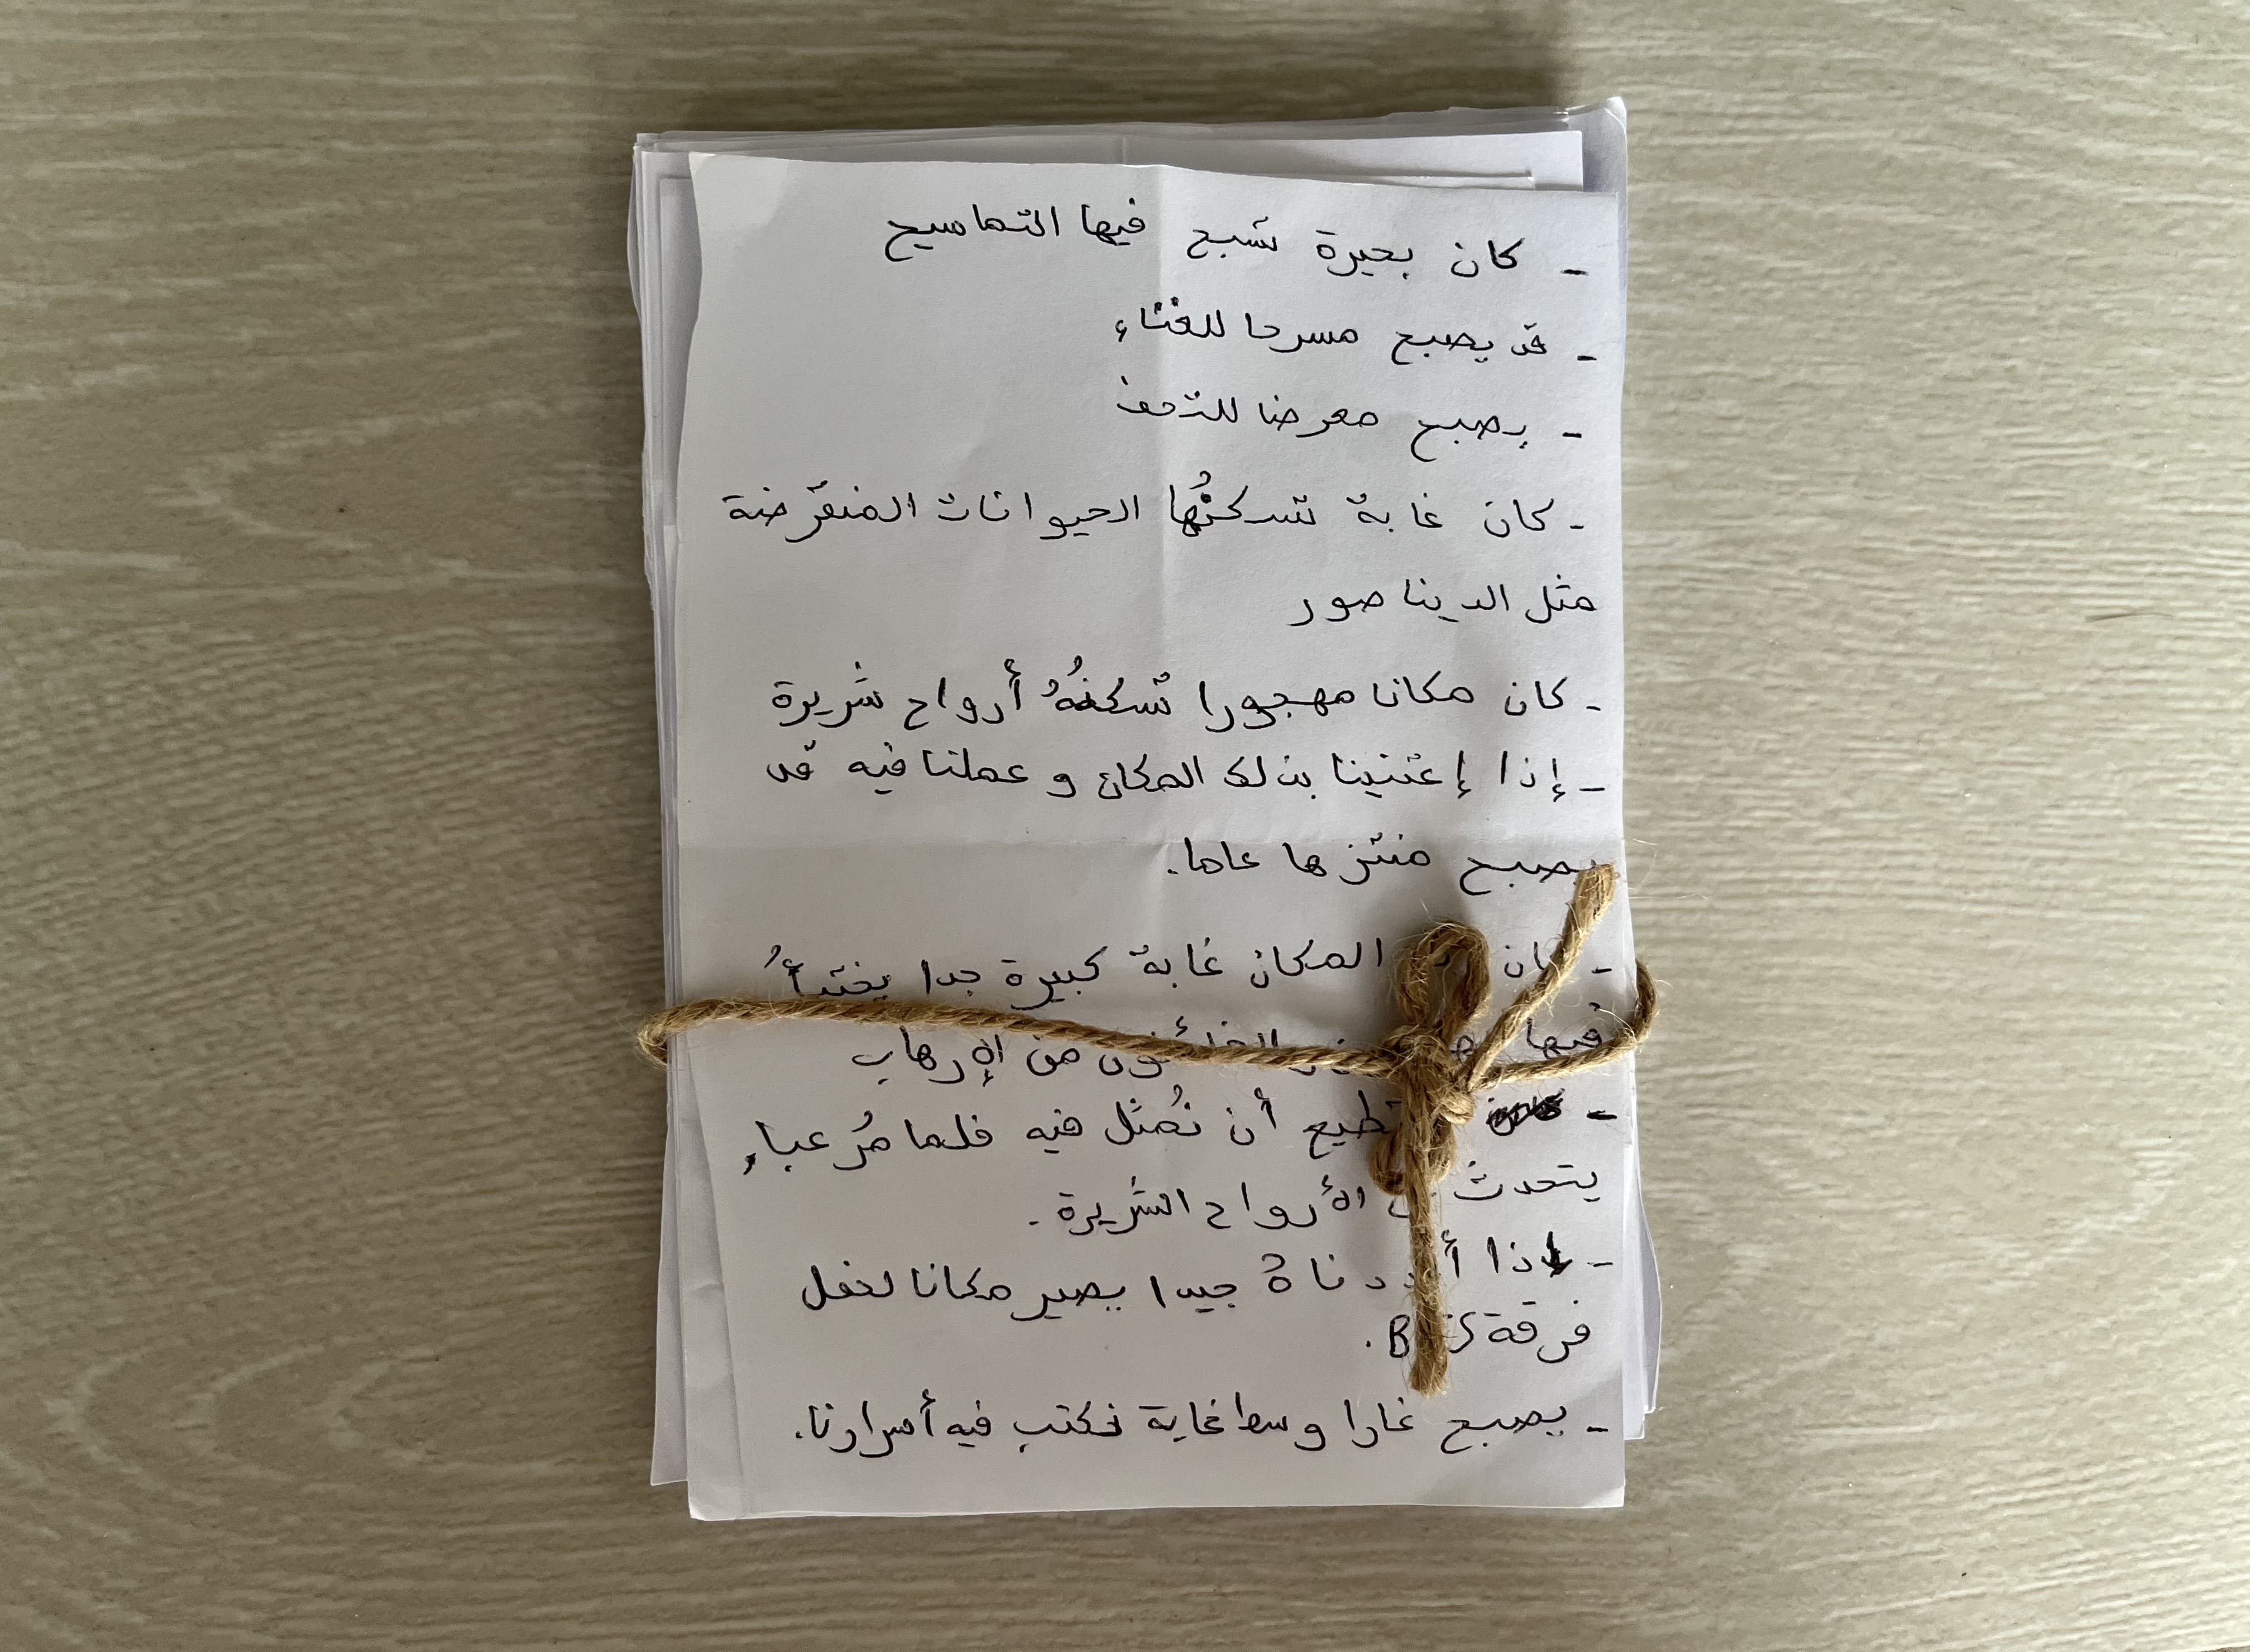 - كان بحيرة تسبح فيها التماسيح
- قد يصبح مسرحا للغناء
- يصبح معرضا للتحف
- كان غابة تسكنُها الحيوانات المنقرضة
مثل الديناصور
- كان مكانا مهجورا تسكنهُ أرواح شريرة
- إذا إعتنينا بذلك المكان و عملنا فيه قد
يصبح منتزها عاما.
- كان المكان غابة كبيرة جدا يختبأُ
فيها الخائفون من الإرهاب
- أن نُمثل فيه فلما مُرعبا،
يتحدث الأرواح الشريرة.
- إذا جيدا يصير مكانا لحفل
فرقة
- يصبح غارا وسط غابة نكتب فيه أسرارنا.